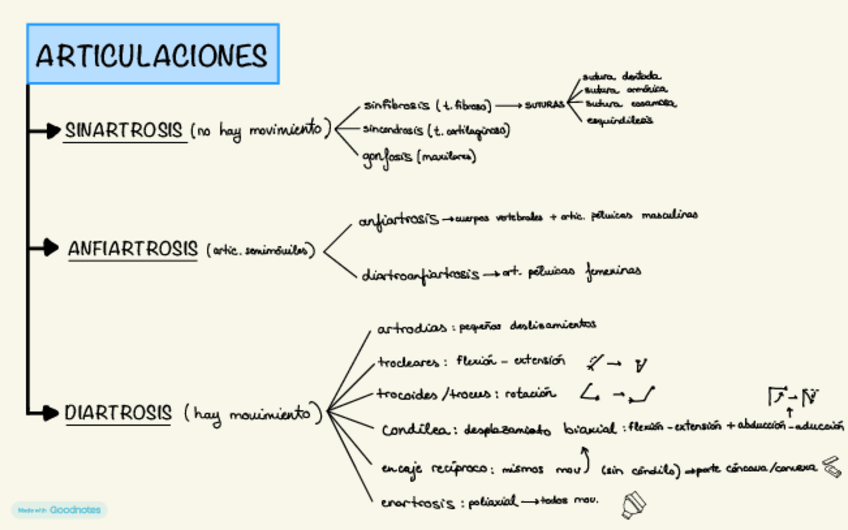 ARTICULACIONES
SINARTROSIS (no hay movimiento)
sinfibrosis (t. fibroso) → SUTURAS
sutura dentada
sutura armónica
sutura escamosa
esquindilesis
sincondrosis (t. cartilaginoso)
gonfosis (maxilares)
ANFIARTROSIS (artic. semimóviles)
anfiartrosis → cuerpos vertebrales + artic. púbicas masculinas
diartroanfiartrosis → art. púbicas femeninas
DIARTROSIS (hay movimiento)
artrodias : pequeños deslizamientos
trocleares : flexión - extensión
trocoides / trocus : rotación
Condílea : desplazamiento biaxial : flexión - extensión + abducción - aducción
encaje recíproco : mismos mov (sin cóndilo) → parte cóncava / convexa
enartrosis : poliaxial → todos mov.
Made with Goodnotes